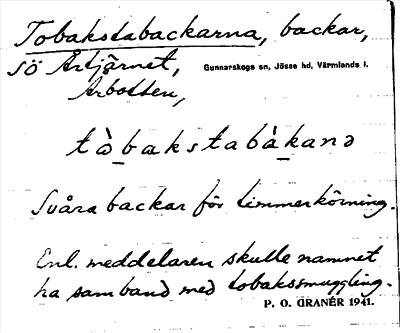 Tobakstabackarna, backar,
sö Årtjärnet, Gunnarskogs sn, Jösse hd, Värmlands l.
Arbotten,
tὰbakstabὰkanə
Svåra backar för timmerkörning.
Enl. meddelaren skulle namnet
ha samband med tobakssmuggling.
P. O. GRANÉR 1941.